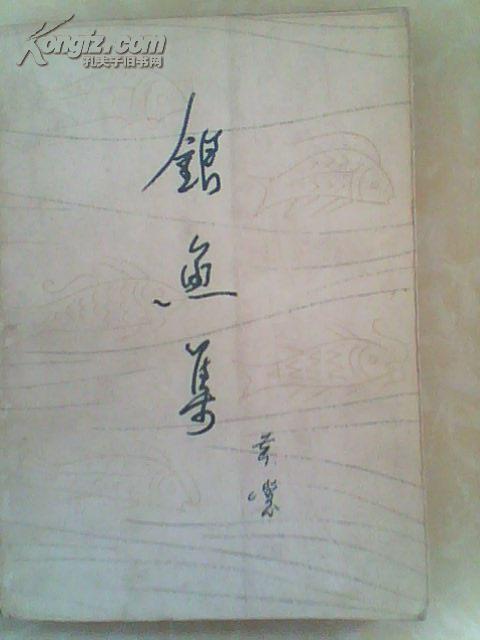 Kongfz.com
孔夫子旧书网
银鱼集
黄裳